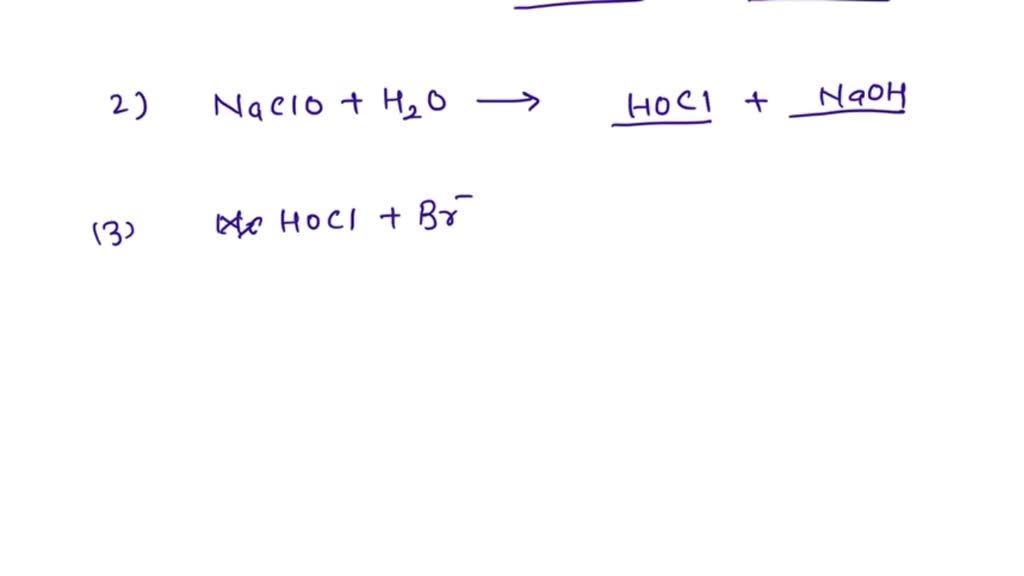 2) NaClO + H₂O ⟶ HOCl + NaOH
(3) HOCl + Br⁻